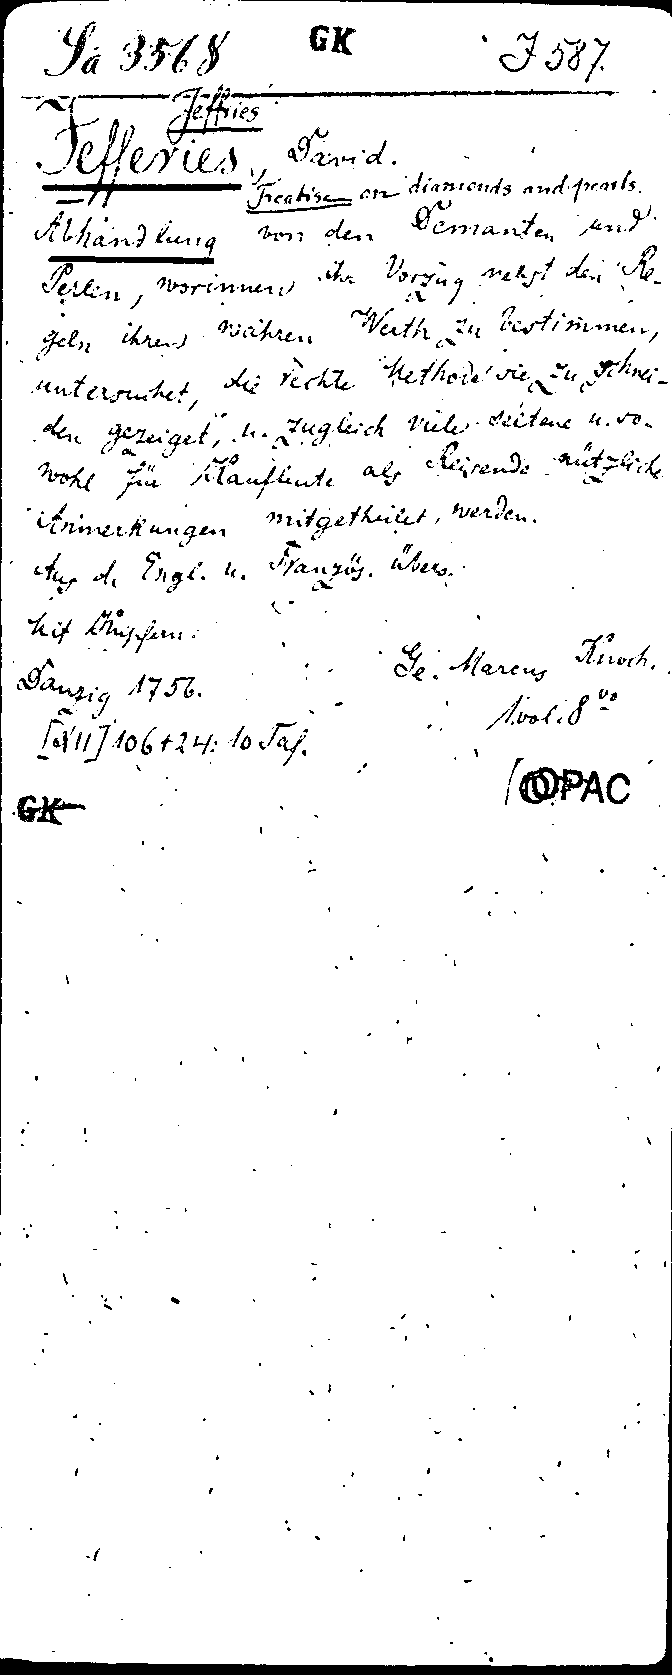 Sa 3568 GK J 587.
Jeffries
Jefferies, David.
Treatise on diamonds and pearls.
Abhandlung von den Demanten und
Perlen, worinnen ihr Vorzug nebst den Re-
geln ihren wahren Werth zu bestimmen,
untersuchet, die rechte Methode sie zu schnei-
den gezeiget, u. zugleich viele seltene u. so-
wohl für Kaufleute als Reisende nützliche
Anmerkungen mitgetheilet, werden.
Aus d. Engl. u. Französ. übers.
Mit Kupfern.
Danzig 1756. Ge. Marcus Knoch.
1 vol. 8vo
106+24; 10 Taf.
OPAC
GK